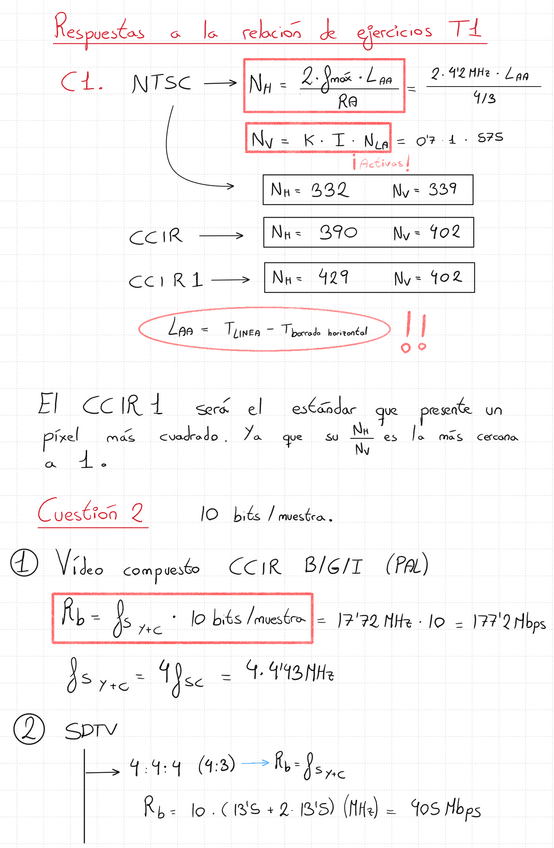 Respuestas a la relación de ejercicios T1
C1. NTSC → N_H = 2·fmáx·L_AA / RA = 2·4'2 MHz·L_AA / 4/3
N_V = K · I · N_LA = 0'7 · 1 · 575
¡Activas!
N_H = 332 N_V = 339
CCIR → N_H = 390 N_V = 402
CCIR1 → N_H = 429 N_V = 402
L_AA = T_LINEA - T_borrado horizontal !!
El CCIR1 será el estándar que presente un
píxel más cuadrado. Ya que su N_H/N_V es la más cercana
a 1.
Cuestión 2 10 bits/muestra.
① Vídeo compuesto CCIR B/G/I (PAL)
R_b = f_s Y+C · 10 bits/muestra = 17'72 MHz · 10 = 177'2 Mbps
f_s Y+C = 4f_SC = 4·4'43 MHz
② SDTV
→ 4:4:4 (4:3) → R_b = f_s Y+C
R_b = 10 · (13'5 + 2·13'5) (MHz) = 405 Mbps